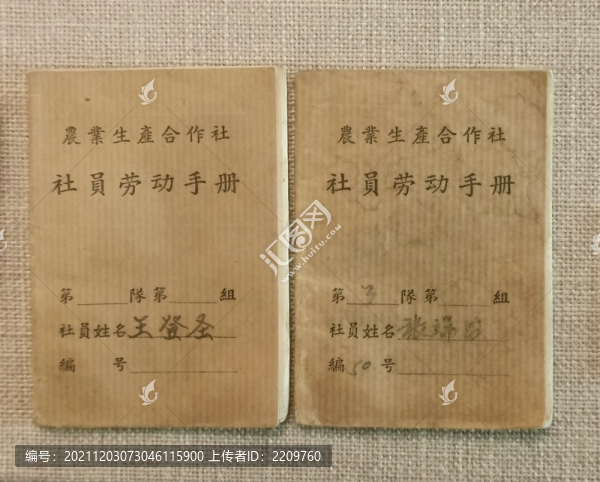 農業生產合作社
社員劳动手册
第 隊第 組
社員姓名王登圣
編 号
農業生產合作社
社員劳动手册
第3隊第 組
社員姓名
編50号
汇图网
www.huitu.com
编号：20211203073046115900 上传者ID：2209760